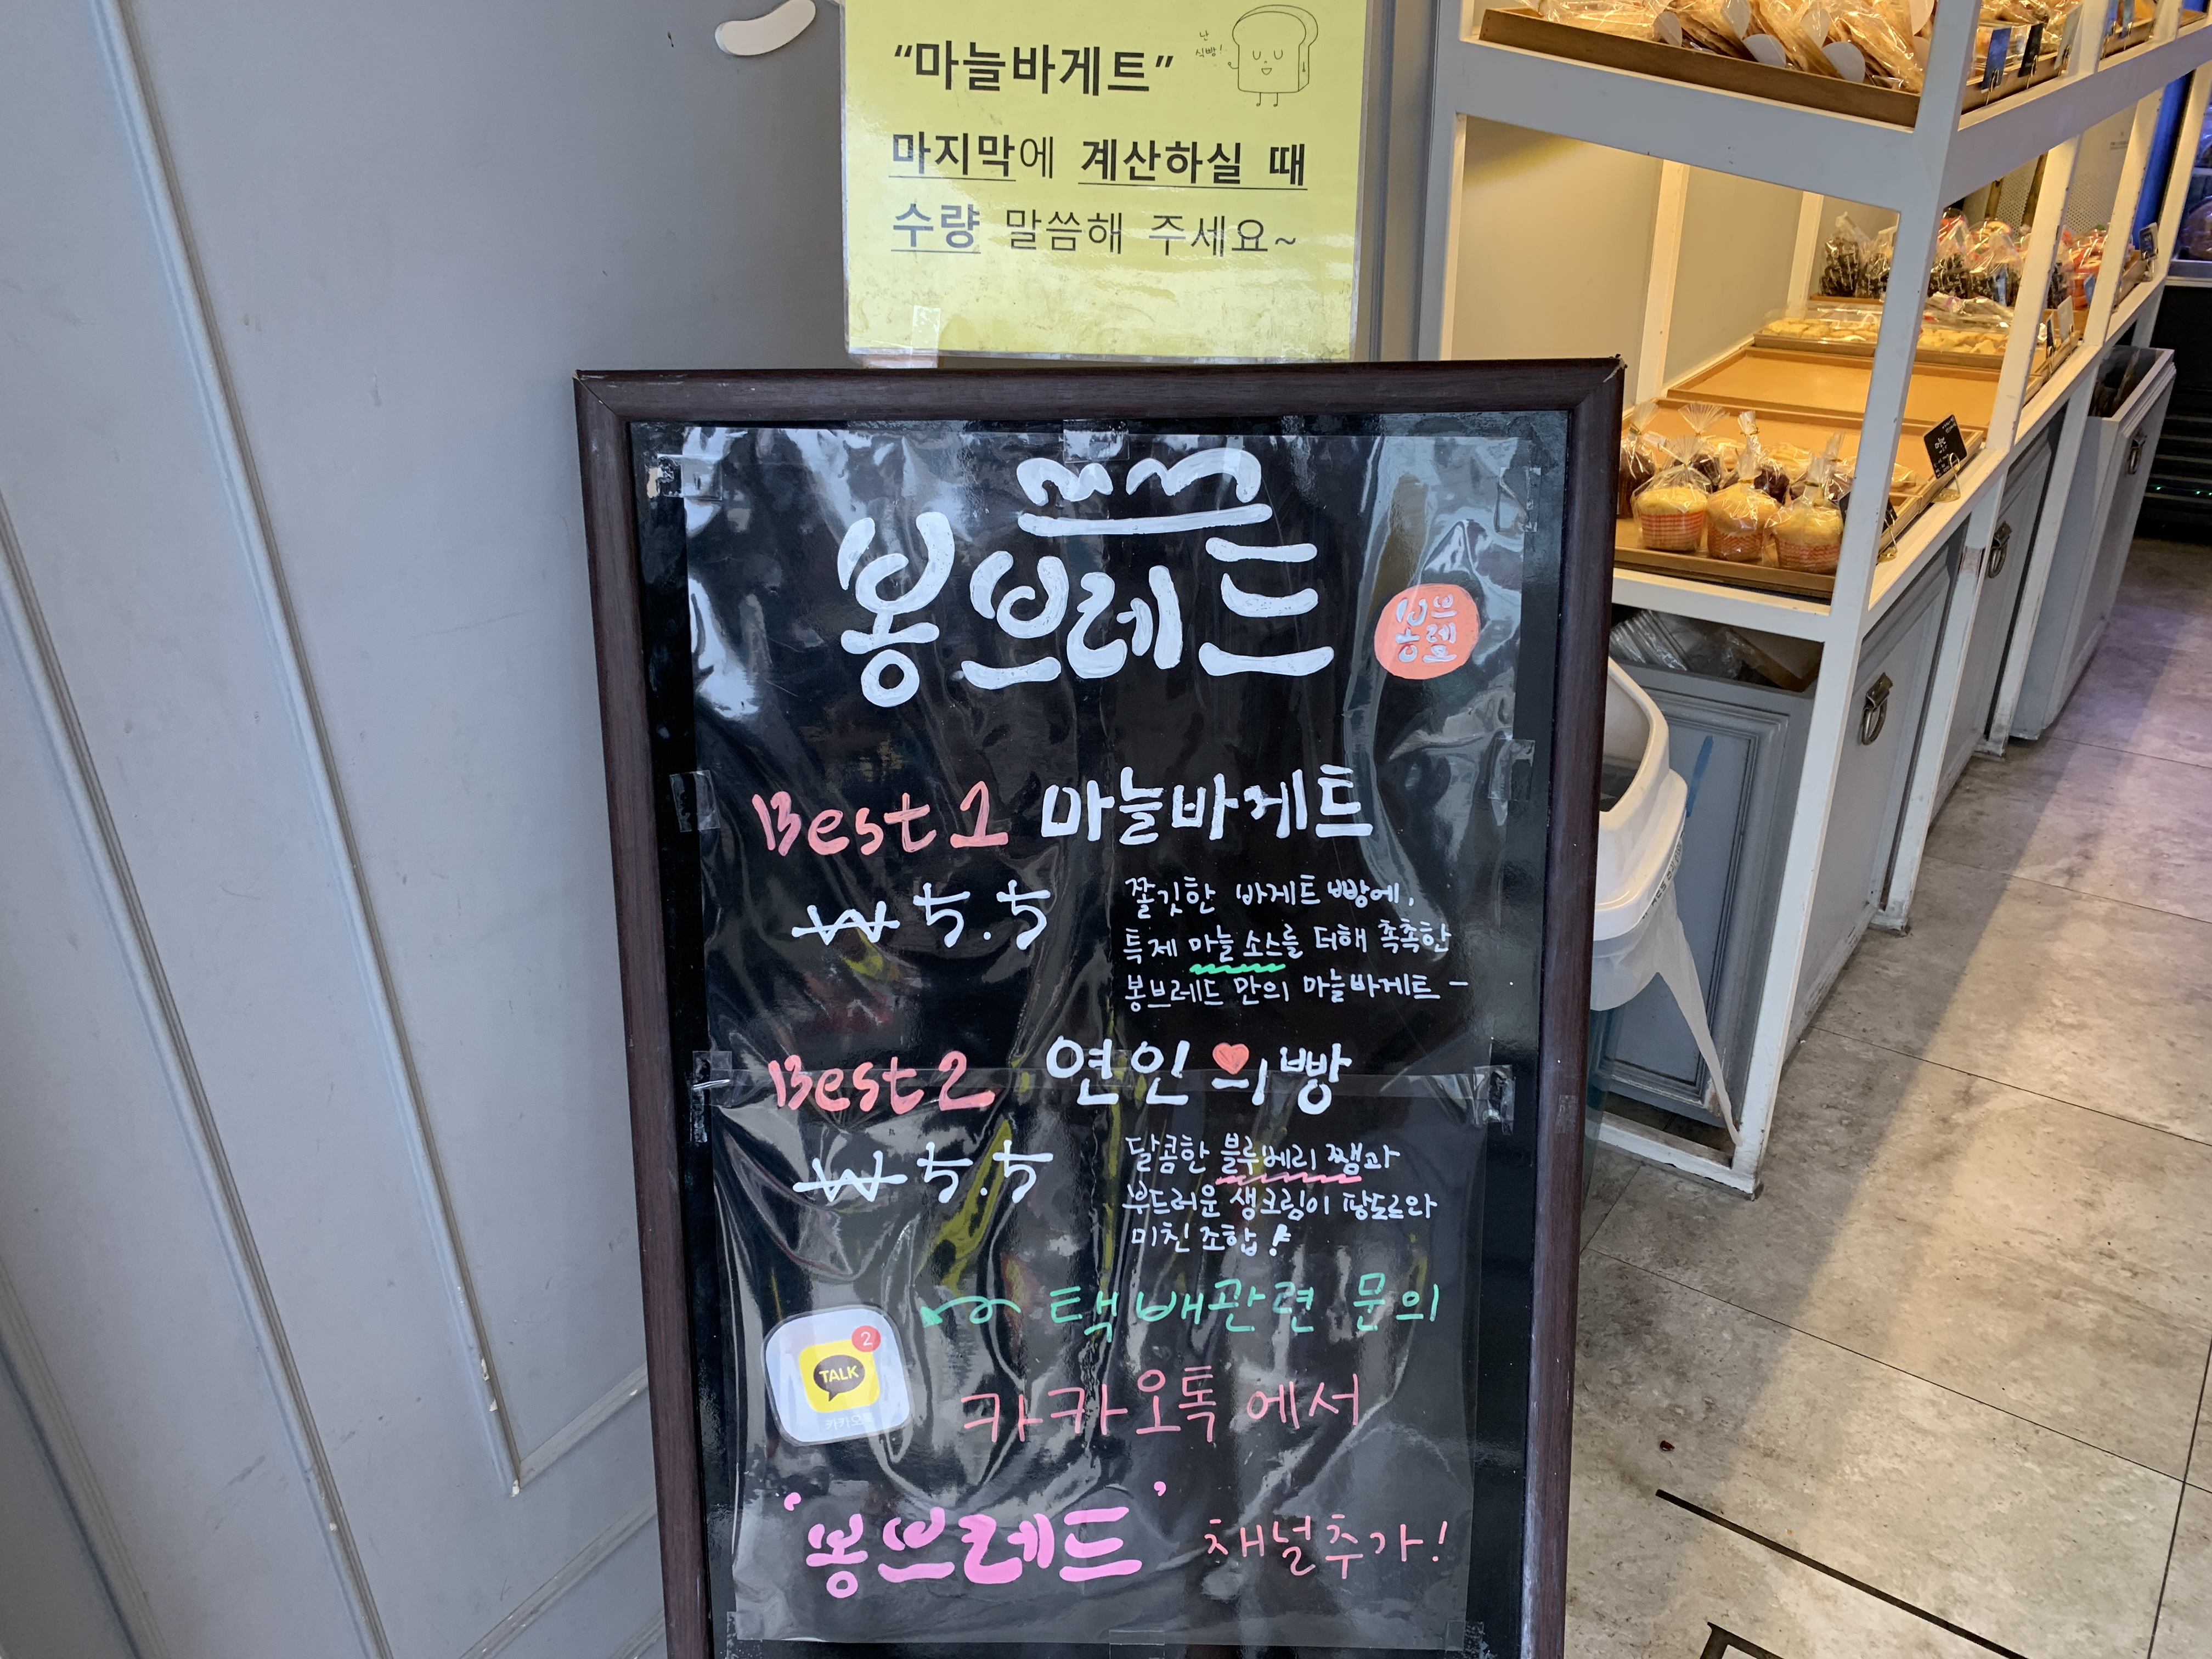 난
식빵!
“마늘바게트”
마지막에 계산하실 때
수량 말씀해 주세요~
봉브레드
봉브
레드
Best 1 마늘바게트
₩ 5.5
쫄깃한 바게트 빵에,
특제 마늘 소스를 더해 촉촉한
봉브레드 만의 마늘바게트 -
Best 2 연인의빵
₩ 5.5
달콤한 블루베리 쨈과
부드러운 생크림이 팡도르와
미친 조합!
택배관련 문의
2
TALK
카카오톡
카카오톡에서
‘봉브레드’ 채널추가!